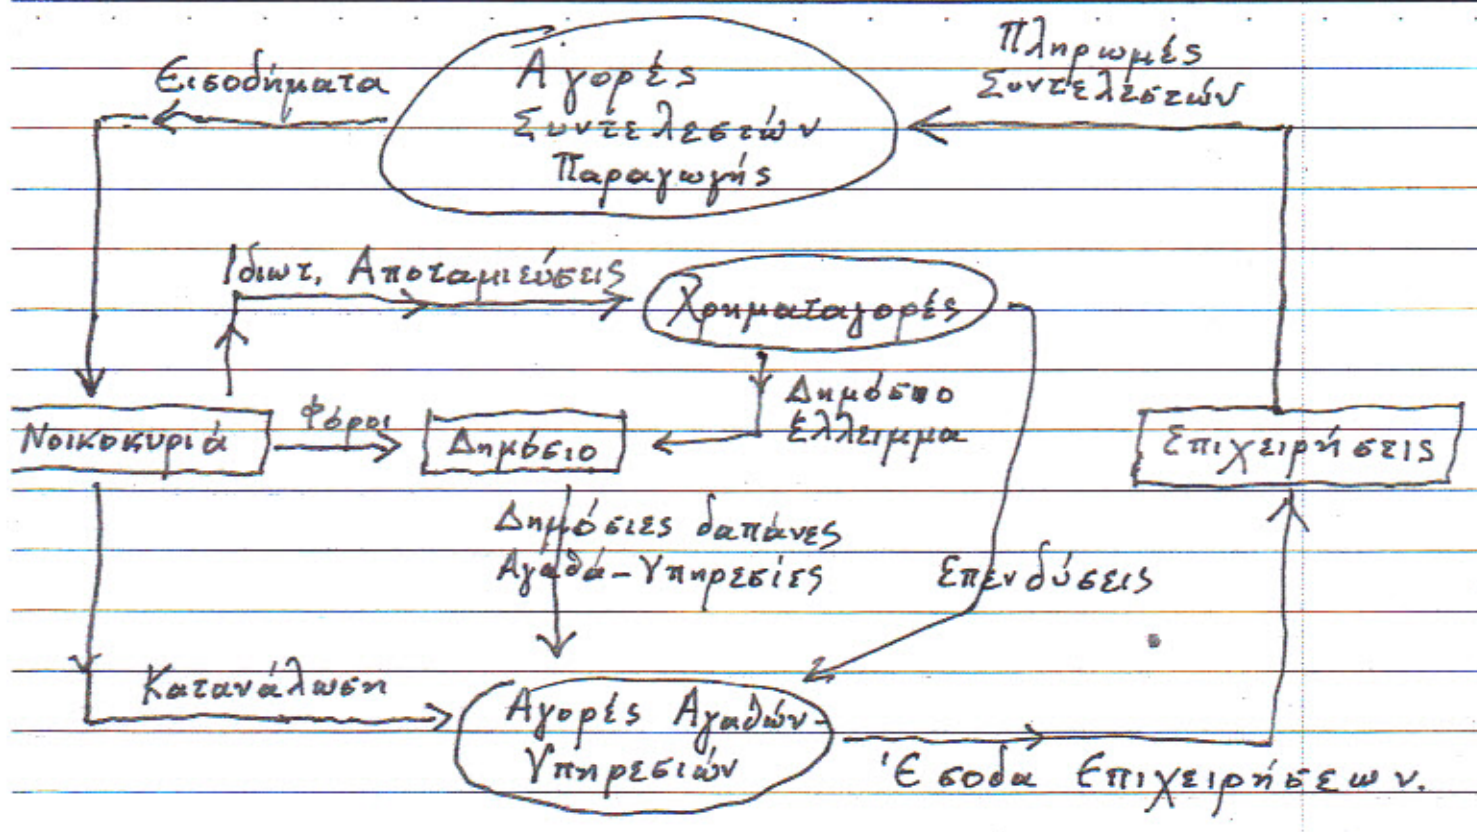 Εισοδήματα
Αγορές
Συντελεστών
Παραγωγής
Πληρωμές
Συντελεστών
Ιδιωτ. Αποταμιεύσεις
Χρηματαγορές
Νοικοκυριά
Φόροι
Δημόσιο
Δημόσιο
Έλλειμμα
Επιχειρήσεις
Δημόσιες δαπάνες
Αγαθά-Υπηρεσίες
Επενδύσεις
Κατανάλωση
Αγορές Αγαθών-
Υπηρεσιών
Έσοδα Επιχειρήσεων.